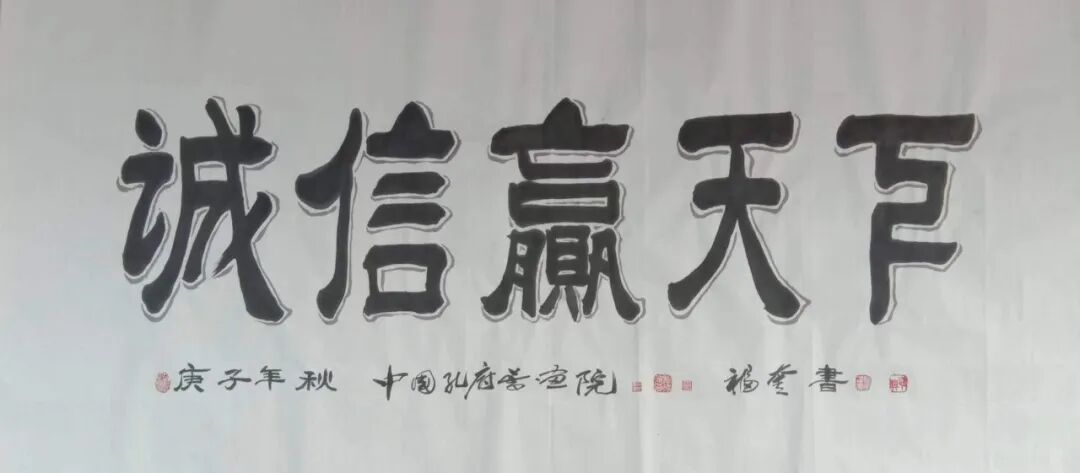 誠信贏天下
庚子年秋 中国孔府书画院 福奎書